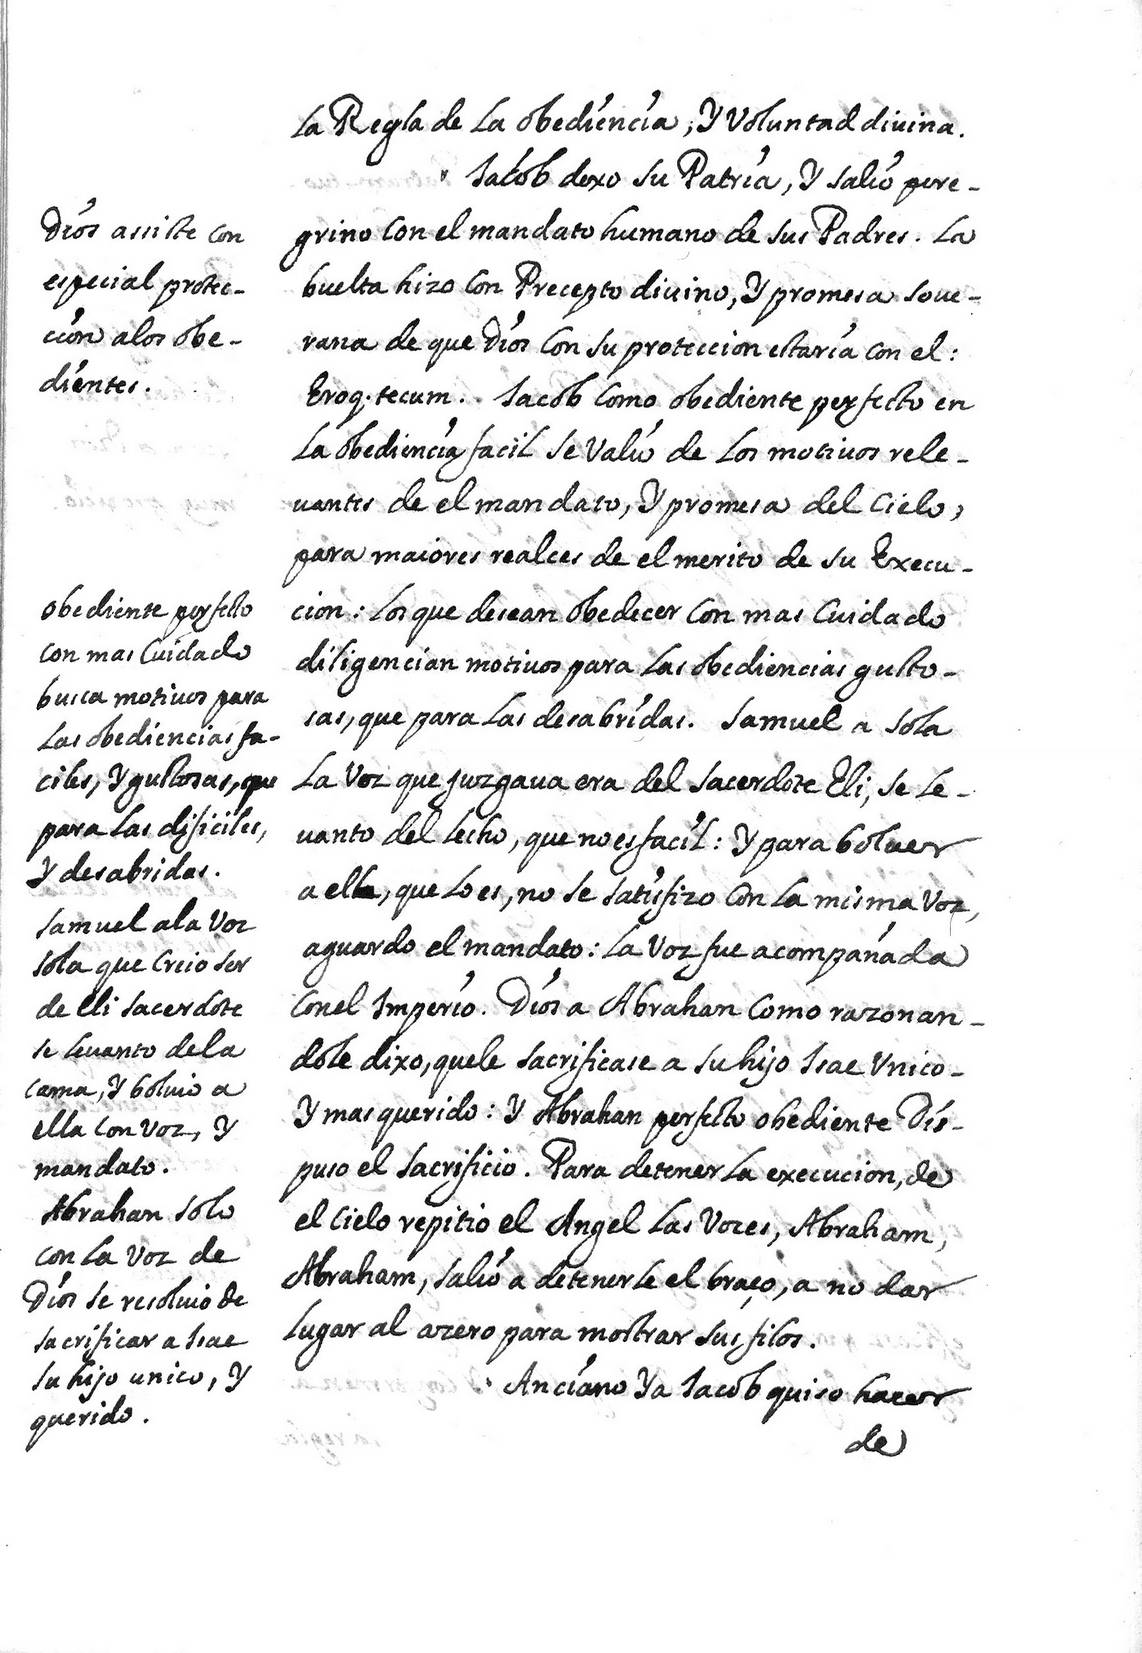 Dios assiste con
especial protec-
cion alos obe-
dientes.
obediente perfecto
con mas Cuidado
busca motivos para
Las obediencias fa-
ciles, Y gustosas, que
para Las dificiles,
Y desabridas.
Samuel ala Voz
sola que Creio ser
de Eli Sacerdote
se levanto dela
cama, Y bolvio a
ella con voz, Y
mandato.
Abrahan solo
con La voz de
Dios se resolvio de
sacrificar a Isac
su hijo unico, Y
querido.
La Regla de La obediencia, Y Voluntad divina.
Iacob dexo su Patria, Y salio pere-
grino con el mandato humano de sus Padres. La
buelta hizo con Precepto divino, Y promesa sove-
rana de que Dios con su proteccion estaria con el:
Eroq. tecum. Iacob como obediente perfecto en
La obediencia facil se valio de Los motivos rele-
vantes de el mandato, Y promesa del Cielo,
para maiores realces de el merito de su Execu-
cion: Los que desean obedecer con mas Cuidado
diligencian motivos para Las obediencias gusto-
sas, que para Las desabridas. Samuel a sola
La Voz que juzgava era del Sacerdote Eli, se le-
vanto del Lecho, que no es facil: Y para bolver
a ella, que Lo es, no se satisfizo con La misma Voz,
aguardo el mandato: La Voz fue acompañada
con el Imperio. Dios a Abrahan como razonan-
dole dixo, quele sacrificase a su hijo Isac Unico
Y mas querido: Y Abrahan perfecto obediente Dis-
puso el sacrificio. Para detener La execucion, de
el Cielo repitio el Angel Las Vozes, Abraham,
Abraham, salio a detenerle el braço, a no dar
Lugar al azero para mostrar sus filos.
Anciano Ya Iacob quiso hacer
de